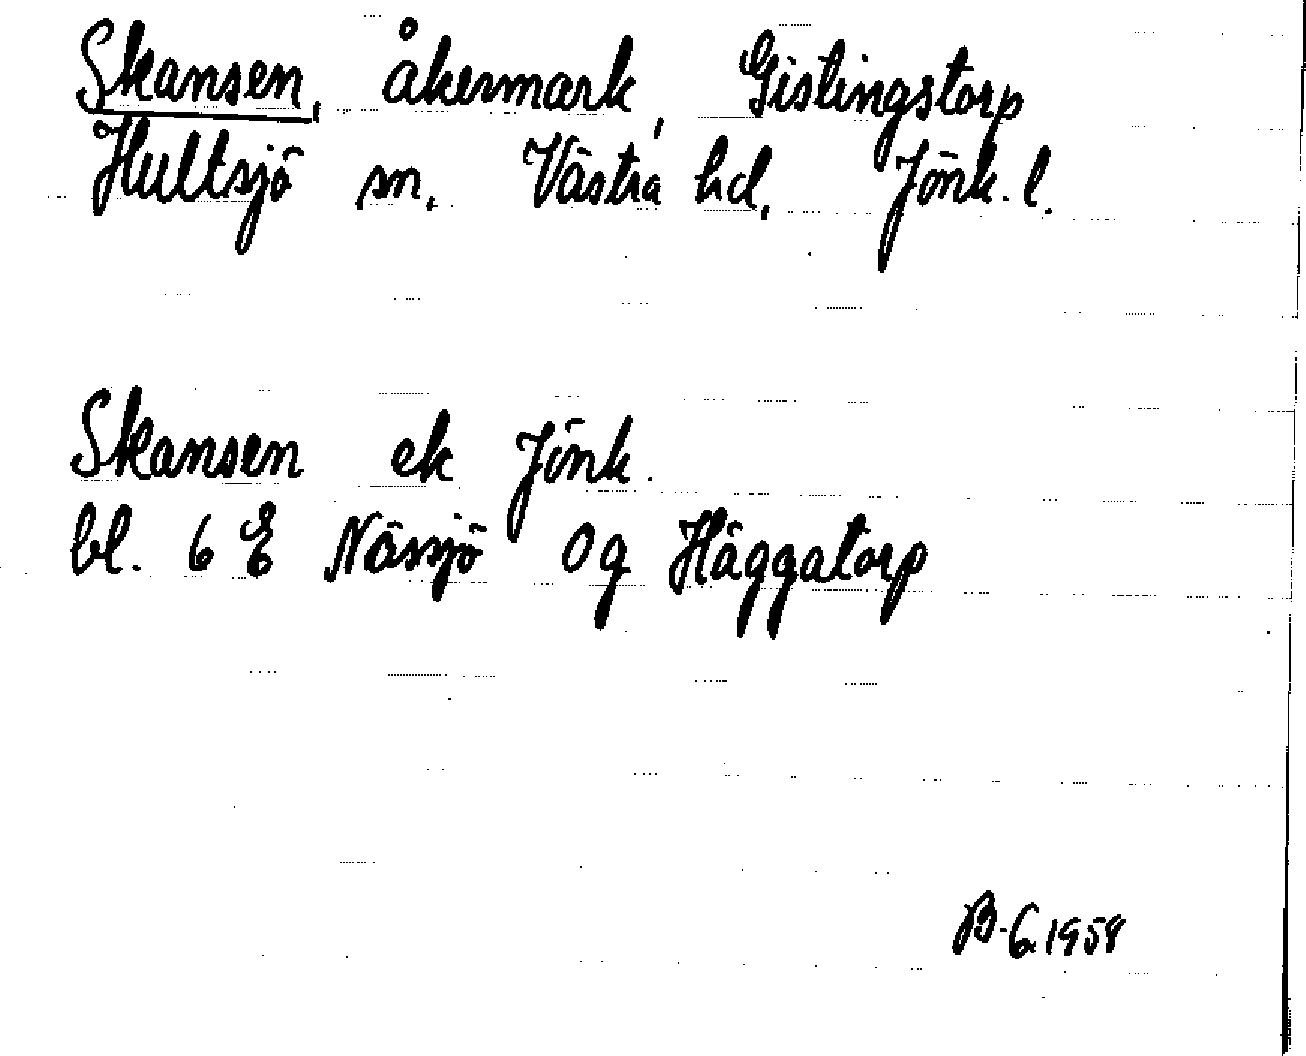 Skansen, åkermark, Gistingstorp
Hultsjö sn. Västra hd. Jönk. l.
Skansen ek Jönk.
bl. 6 E Nässjö 0g Häggatorp
B-G. 1958